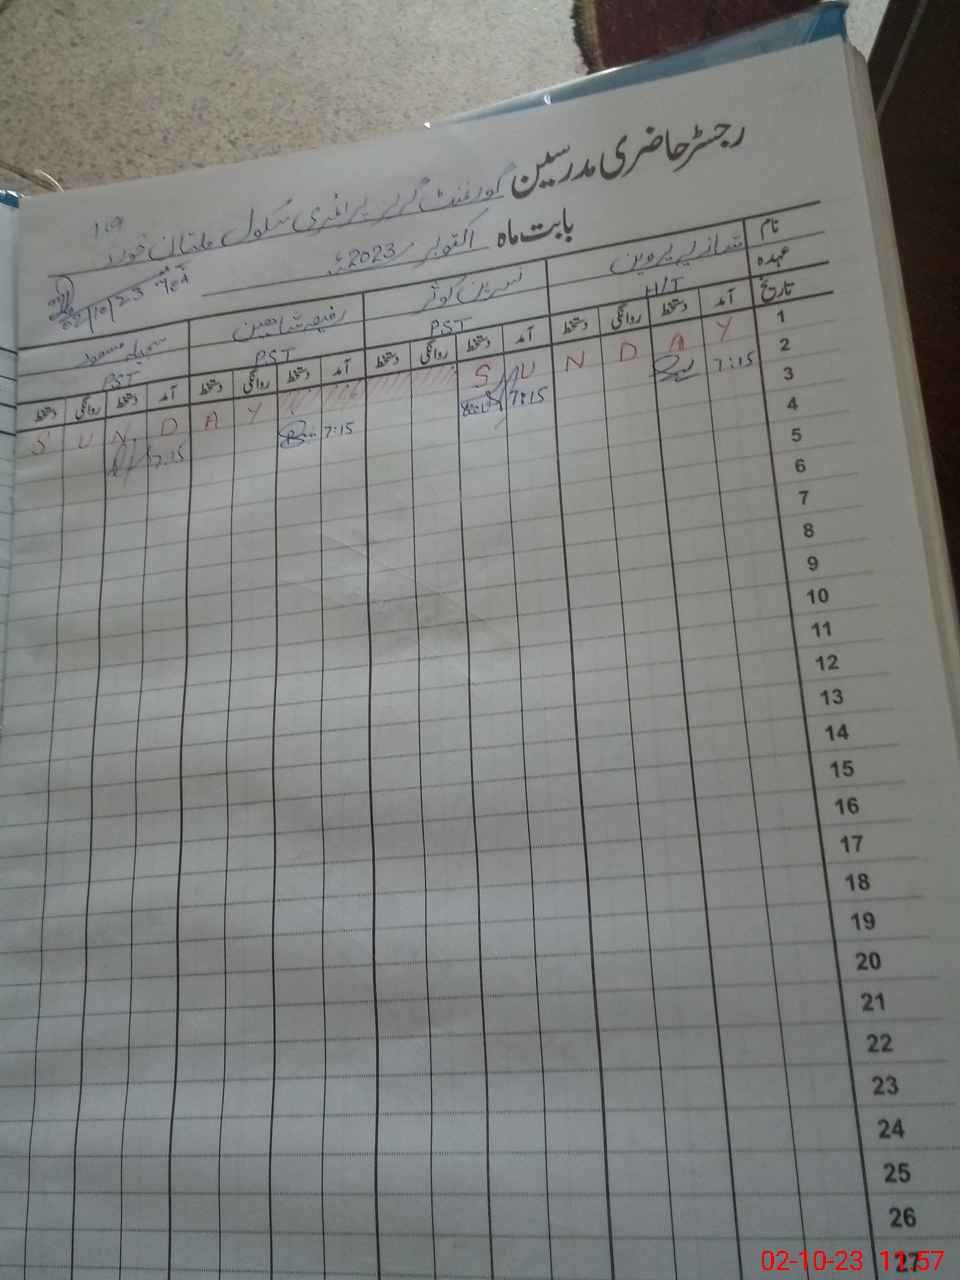 رجسٹر حاضری مدرسین گورنمنٹ گرلز پرائمری سکول ملتان خورد
بابت ماہ اکتوبر 2023ء
02/10/23
نام شہناز پروین نسرین کوثر رفیعہ شاہین
عہدہ H/T PST PST PST
تاریخ آمد دستخط روانگی دستخط آمد دستخط روانگی دستخط آمد دستخط روانگی دستخط آمد دستخط روانگی دستخط
1 S U N D A Y S U N D A Y
2 7:15 7:15 7:15 7:15
3
4
5
6
7
8
9
10
11
12
13
14
15
16
17
18
19
20
21
22
23
24
25
26
27
02-10-23 11:57